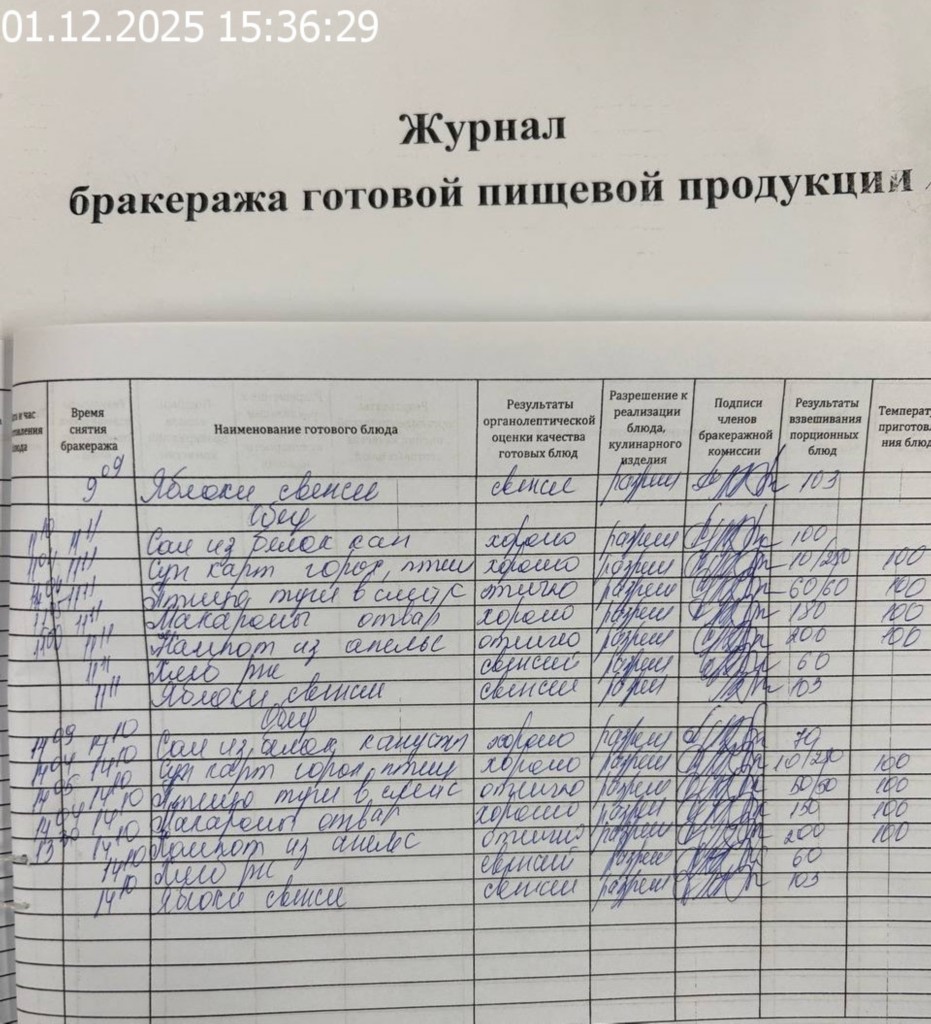 01.12.2025 15:36:29
Журнал
бракеража готовой пищевой продукции
Время снятия бракеража Наименование готового блюда Результаты органолептической оценки качества готовых блюд Разрешение к реализации блюда, кулинарного изделия Подписи членов бракеражной комиссии Результаты взвешивания порционных блюд
9 09 Яблоки свежие свежие разреш 103
Обед
11 11 Сал из белок кап хорошо разреш 100
11 11 Суп карт горох, птиц хорошо разреш 10/250 100
11 11 Птица туш в см соус отлично разреш 60/60 100
11 11 Макароны отвар хорошо разреш 180 100
11 11 Компот из апельс отлично разреш 200 100
11 11 Хлеб рж свежий разреш 60
11 11 Яблоки свежие свежие 103
Обед
14 10 Сал из белок капусты хорошо разреш 70
14 10 Суп карт горох птиц хорошо разреш 10/250 100
14 10 Птица туш в см соус отлично разреш 50/50 100
14 10 Макароны отвар хорошо разреш 150 100
14 10 Компот из апельс отлично разреш 200 100
14 10 Хлеб рж свежий разреш 60
14 10 Яблоки свежие свежие разреш 103